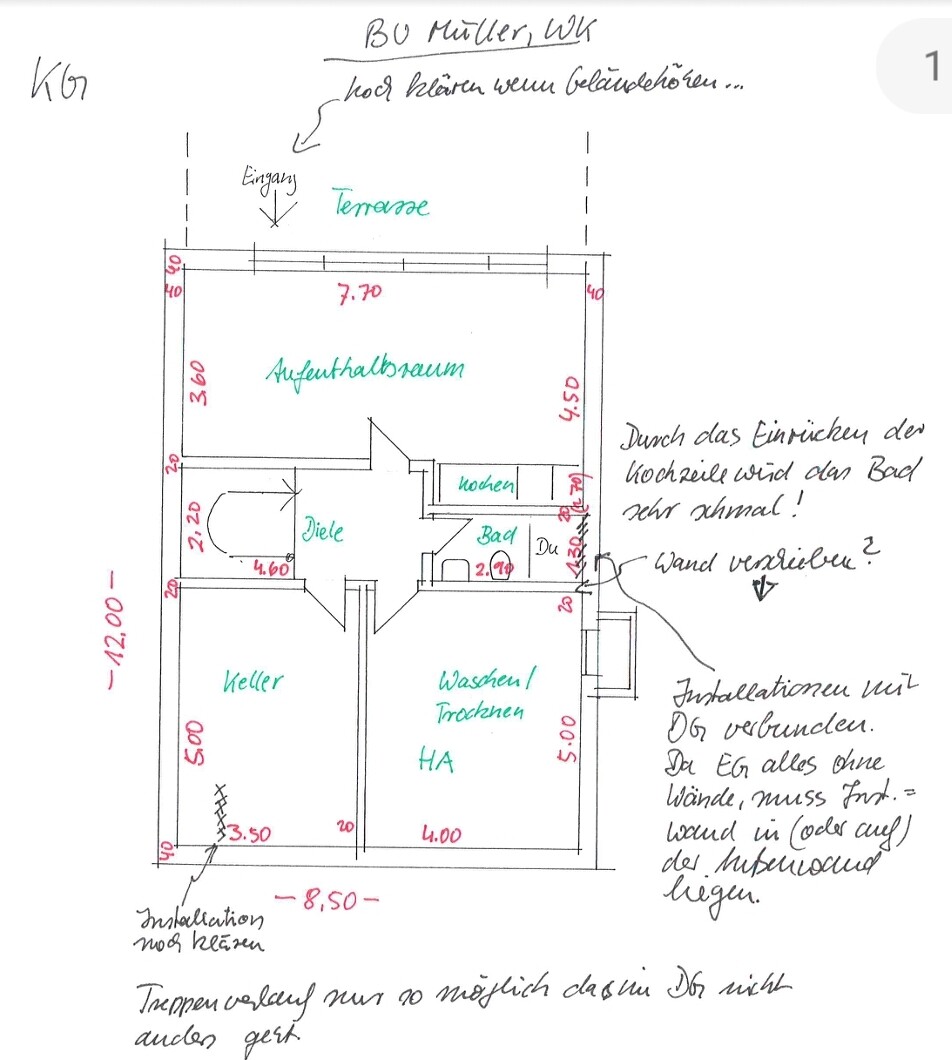 BV Müller, WK
KG
noch klären wenn Geländehöhen...
1
Eingang
Terrasse
40
40
7.70
40
3.60
Aufenthaltsraum
4.50
Durch das Einrücken der
Kochzeile wird das Bad
sehr schmal!
20
Kochen
(70)
20
2.20
Diele
Bad
Du
1.30
4.60
2.90
Wand verschieben?
20
20
-12,00-
Keller
Waschen/
Trocknen
HA
Installationen mit
DG verbunden.
Da EG alles ohne
Wände, muss Inst.=
wand in (oder auf)
der Außenwand
liegen.
5.00
5.00
3.50
20
4.00
40
-8,50-
Installation
noch klären
Treppenverlauf nur so möglich da im DG nicht
anders geht.